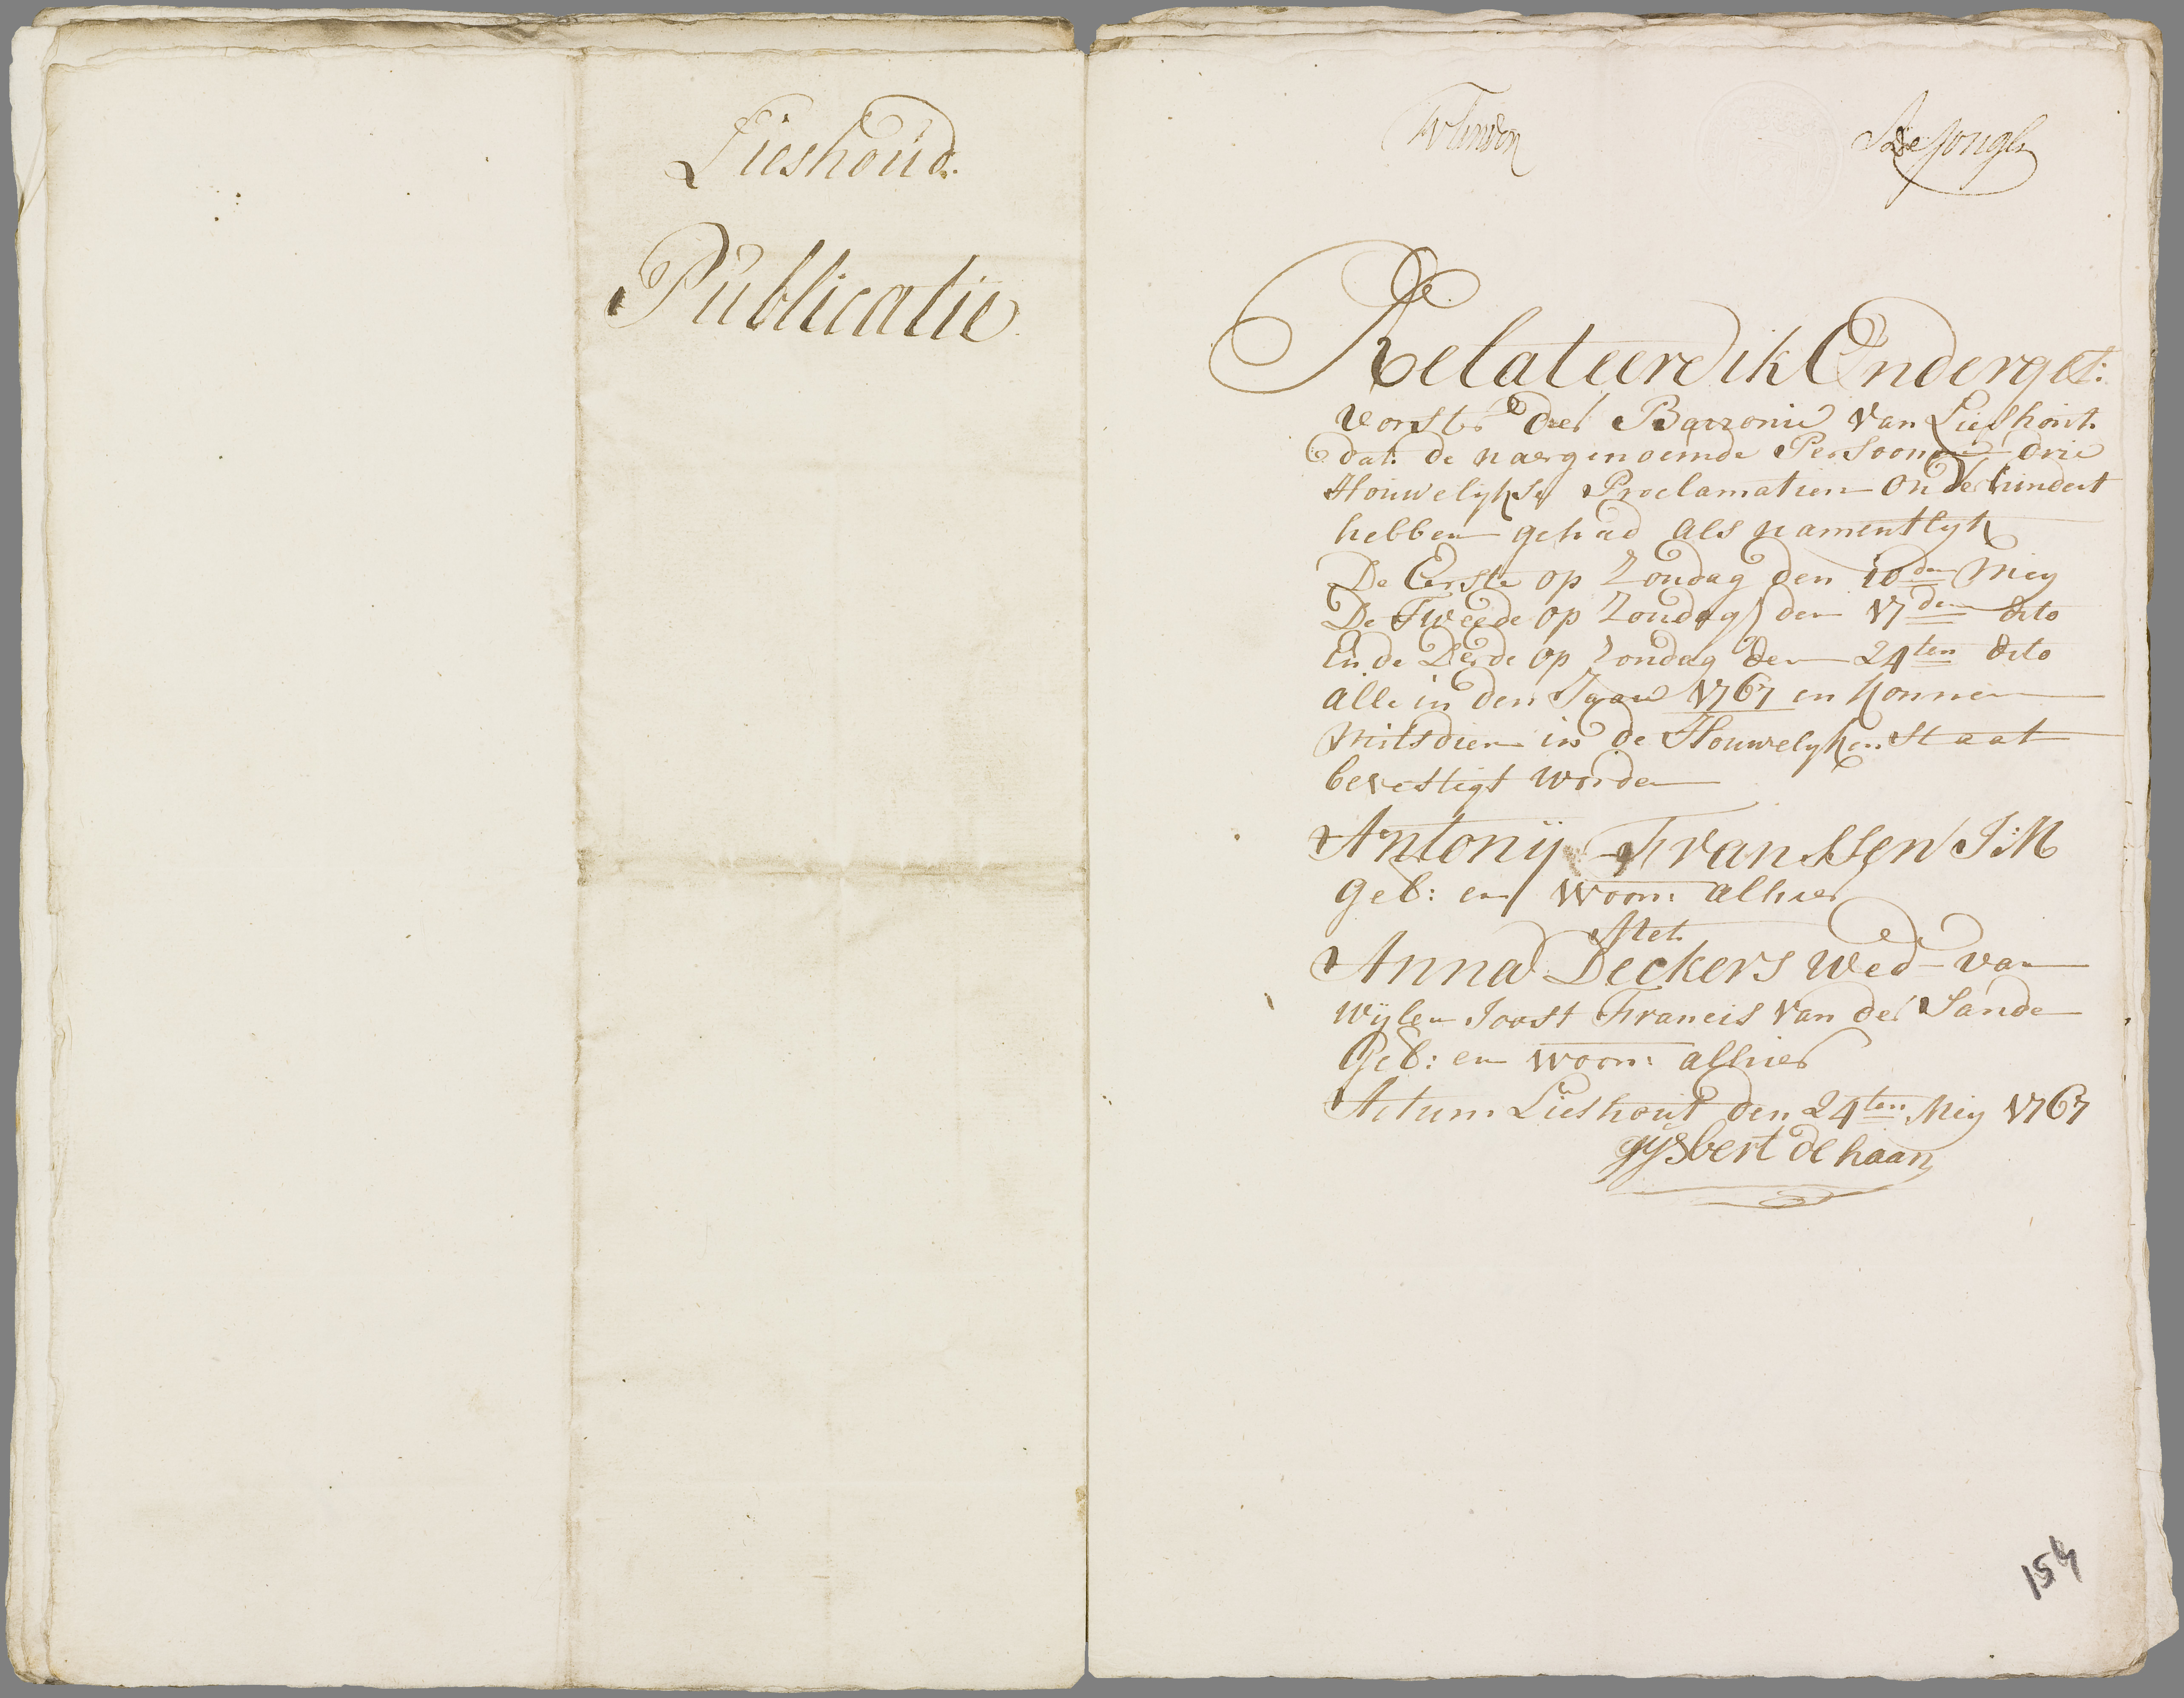 Lieshoud.
Publicatie
de Jongh
Relateere ik Onderget:
vorster der Barronie van Lieshout
dat de naergenoemde Persoonen drie
Houwelykse Proclamatien Onverhindert
hebben gehad als namentlyk
De Eerste op Zondag den 10den Mey
De Tweede op Zondag den 17den dito
En de Derde op Zondag den 24ten dito
alle in den Jaare 1767 en konnen
mitsdien in de Houwelyken Staat
bevestigt worden
Antonij Franssen J:M
geb: en woon: alhier
Met
Anna Deckers wed van
wijlen Joost Francis van der Sande
Geb: en woon: alhier
Actum Lieshout den 24ten Mey 1767
gijsbert de haan
154